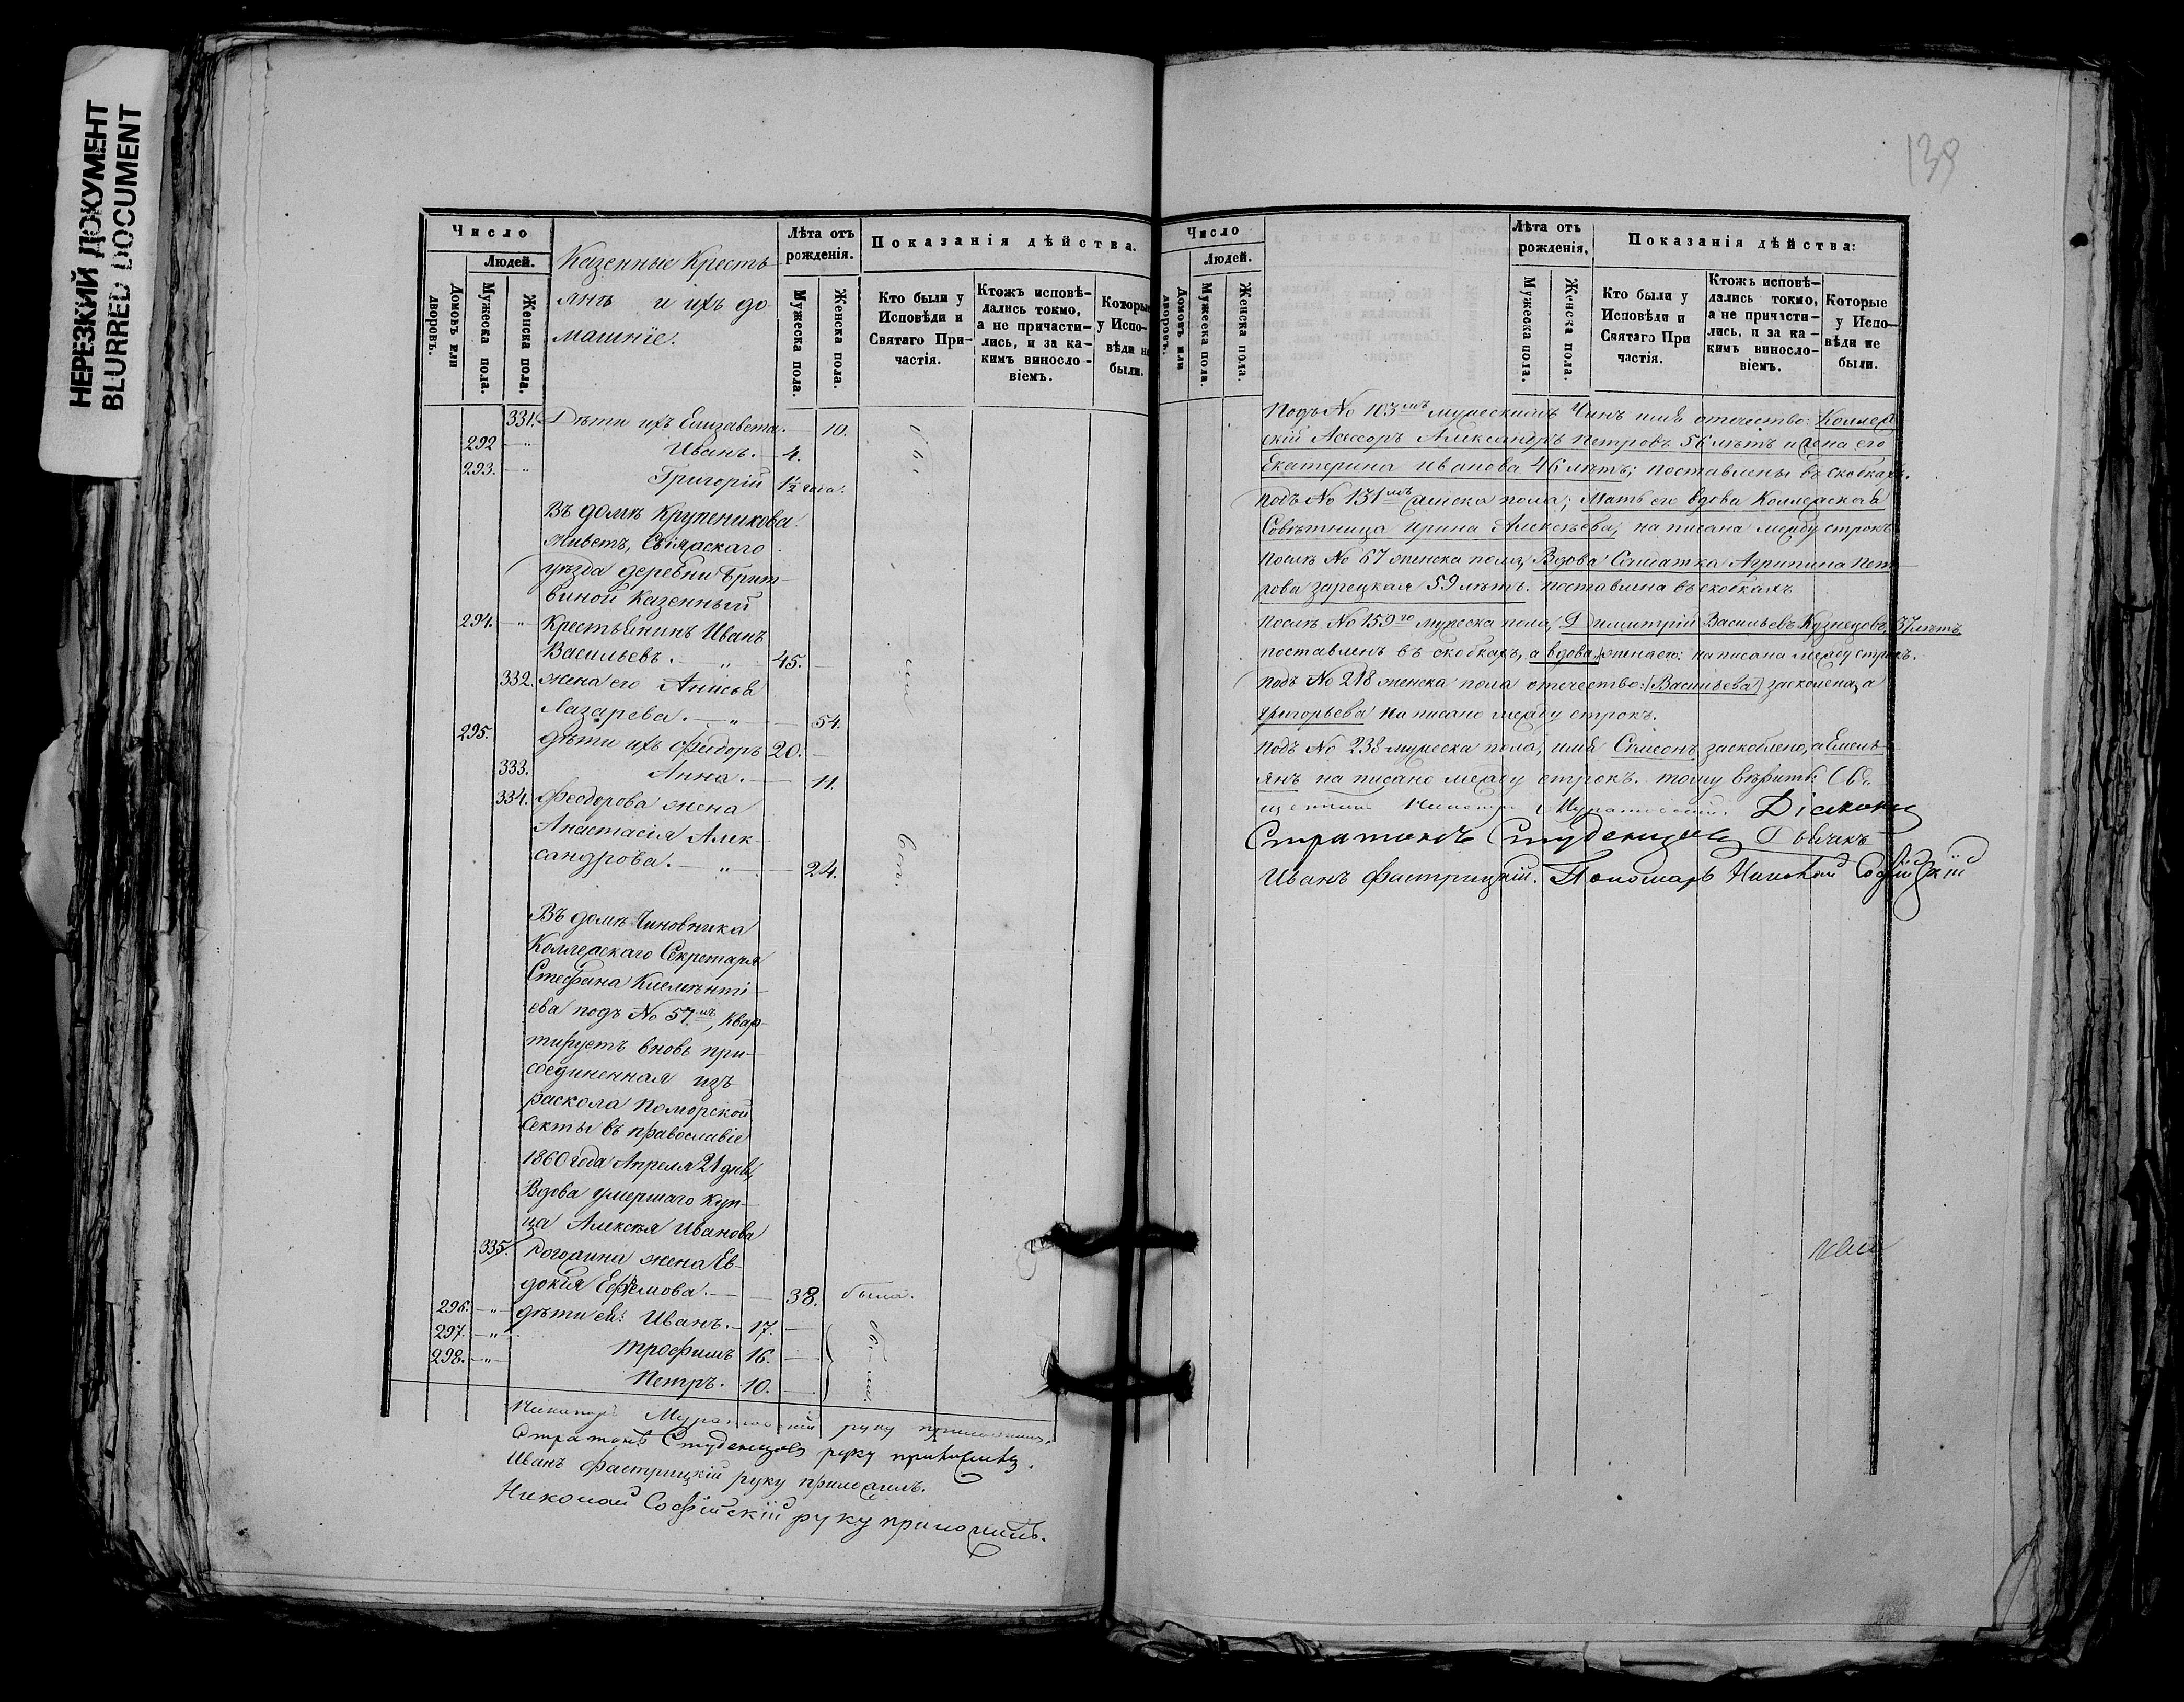 НЕРЕЗКИЙ ДОКУМЕНТ
BLURRED DOCUMENT
Число
Людей.
Домовъ или дворовъ.
Мужеска пола.
Женска пола.
Казенные Кресть
янъ и ихъ до
машніе.
Лѣта отъ
рожденія.
Мужеска пола.
Женска пола.
Показанія дѣйства.
Кто были у
Исповѣди и
Святаго При-
частія.
Ктожъ исповѣ-
дались токмо,
а не причасти-
лись, и за ка-
кимъ винословіемъ.
Которые
у Испо-
вѣди не
были.
331. Дѣти ихъ Елизавета. — 10.
292 — " Иванъ. — 4.
293. — " Григорій 1½ года.
Въ домѣ Крупеникова
живетъ, Свіяжскаго
уѣзда деревни Брит-
виной Казенный
294. — " Крестьянинъ Иванъ
Васильевъ. — " 45. —
332. жена его Анисья
Лазарева. — " — 54.
295. дѣти ихъ Ѳедоръ 20. —
333. Анна. — 11.
334. Феодорова жена
Анастасія Алек-
сандрова. — " — 24.
Въ домѣ Чиновника
Коллежскаго Секретаря
Стефана Клементі-
ева подъ No 57мъ, квар-
тируетъ вновь при-
соединенная изъ
раскола поморской
секты въ православіе
1860 года Апреля 21 дня,
Вдова умершаго куп-
ца Алексѣя Иванова
335. Рогожина жена Ев-
докія Ефѣмова. — — 38. была.
296. — " — дѣти ея: Иванъ. — 17. —
297. — " — Трофимъ 16. —
298. — " — Петръ. 10. —
были.
Никаноръ Муратовскій руку приложилъ.
Стратонъ Студенцовъ руку приложилъ.
Иванъ Фастрицкій руку приложилъ.
Николай Софійскій руку приложилъ.
139
Число
Людей.
Домовъ или дворовъ.
Мужеска пола.
Женска пола.
Лѣта отъ
рожденія.
Мужеска пола.
Женска пола.
Показанія дѣйства:
Кто были у
Исповѣди и
Святаго При
частія.
Ктожъ исповѣ-
дались токмо,
а не причасти-
лись, и за ка-
кимъ винословіемъ.
Которые
у Испо-
вѣди не
были.
Подъ No 103мъ мужескимъ Чинъ имя отечество: Коллеж
скій Асессоръ Александръ Петровъ 56 лѣтъ и жена его
Екатерина Иванова 46 лѣтъ; поставлены въ скобкахъ.
Подъ No 131мъ женска пола; Мать его вдова Коллежская
Совѣтница Ирина Алексѣева, написана между строкъ
Послѣ No 67 женска пола, Вдова Солдатка Агрипина Пет
рова Зарецкая 59 лѣтъ. поставлена въ скобкахъ
Послѣ No 159го мужеска пола, Димитрій Васильевъ Кузнецовъ, 37 лѣтъ
поставленъ въ скобкахъ, а вдова, жена его: написана между строкъ.
Подъ No 218 женска пола отечество: (Васильева) заскоблена, а
Григорьева написано между строкъ.
Подъ No 238 мужеска пола, имя Симеонъ заскоблено, а Емель-
янъ написано между строкъ. тому вѣрить: Свя
щенникъ Никаноръ Муратовскій. Діаконъ
Стратонъ Студенцовъ Дьячекъ
Иванъ Фастрицкій. Пономарь Николай Софійскій